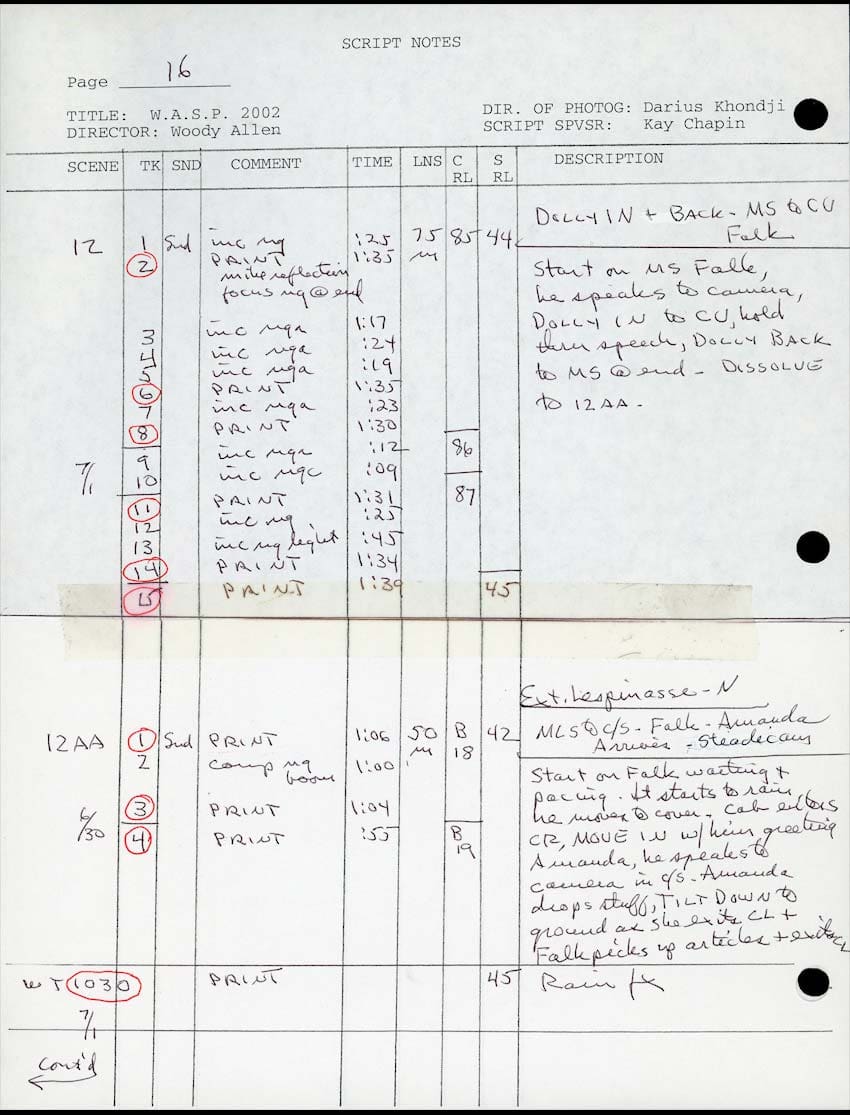 SCRIPT NOTES
Page 16
TITLE: W.A.S.P. 2002
DIRECTOR: Woody Allen
DIR. OF PHOTOG: Darius Khondji
SCRIPT SPVSR: Kay Chapin
SCENE TK SND COMMENT TIME LNS C RL S RL DESCRIPTION
DOLLY IN + BACK - MS to CU
Falk
12 1 Snd inc ng :25 75 m 85 44
2 PRINT 1:35
mike reflection
focus ng @ end
Start on MS Falk,
he speaks to camera,
DOLLY IN to CU, hold
thru speech, DOLLY BACK
to MS @ end - DISSOLVE
to 12AA.
3 inc nga 1:17
4 inc nga :24
5 inc nga :19
6 PRINT 1:35
7 inc nga :23
8 PRINT 1:30
7/1 9 inc nga :12 86
10 inc nga :09
11 PRINT 1:31 87
12 inc ng :25
13 inc ng light :45
14 PRINT 1:34
15 PRINT 1:39 45
Ext. Lespinasse - N
MLS to c/s - Falk - Amanda
Arrives - Steadicam
12AA 1 Snd PRINT 1:06 50 m B 18 42
2 comp ng 1:00
boom
6/30 3 PRINT 1:04
4 PRINT :55 B 19
Start on Falk waiting +
pacing. It starts to rain,
he moves to cover. Cab enters
CR, MOVE IN w/ him greeting
Amanda, he speaks to
camera in c/s. Amanda
drops stuff, TILT DOWN to
ground as she exits CL +
Falk picks up articles + exits CL
WT 1030 PRINT 45 Rain fx
7/1
Cont'd